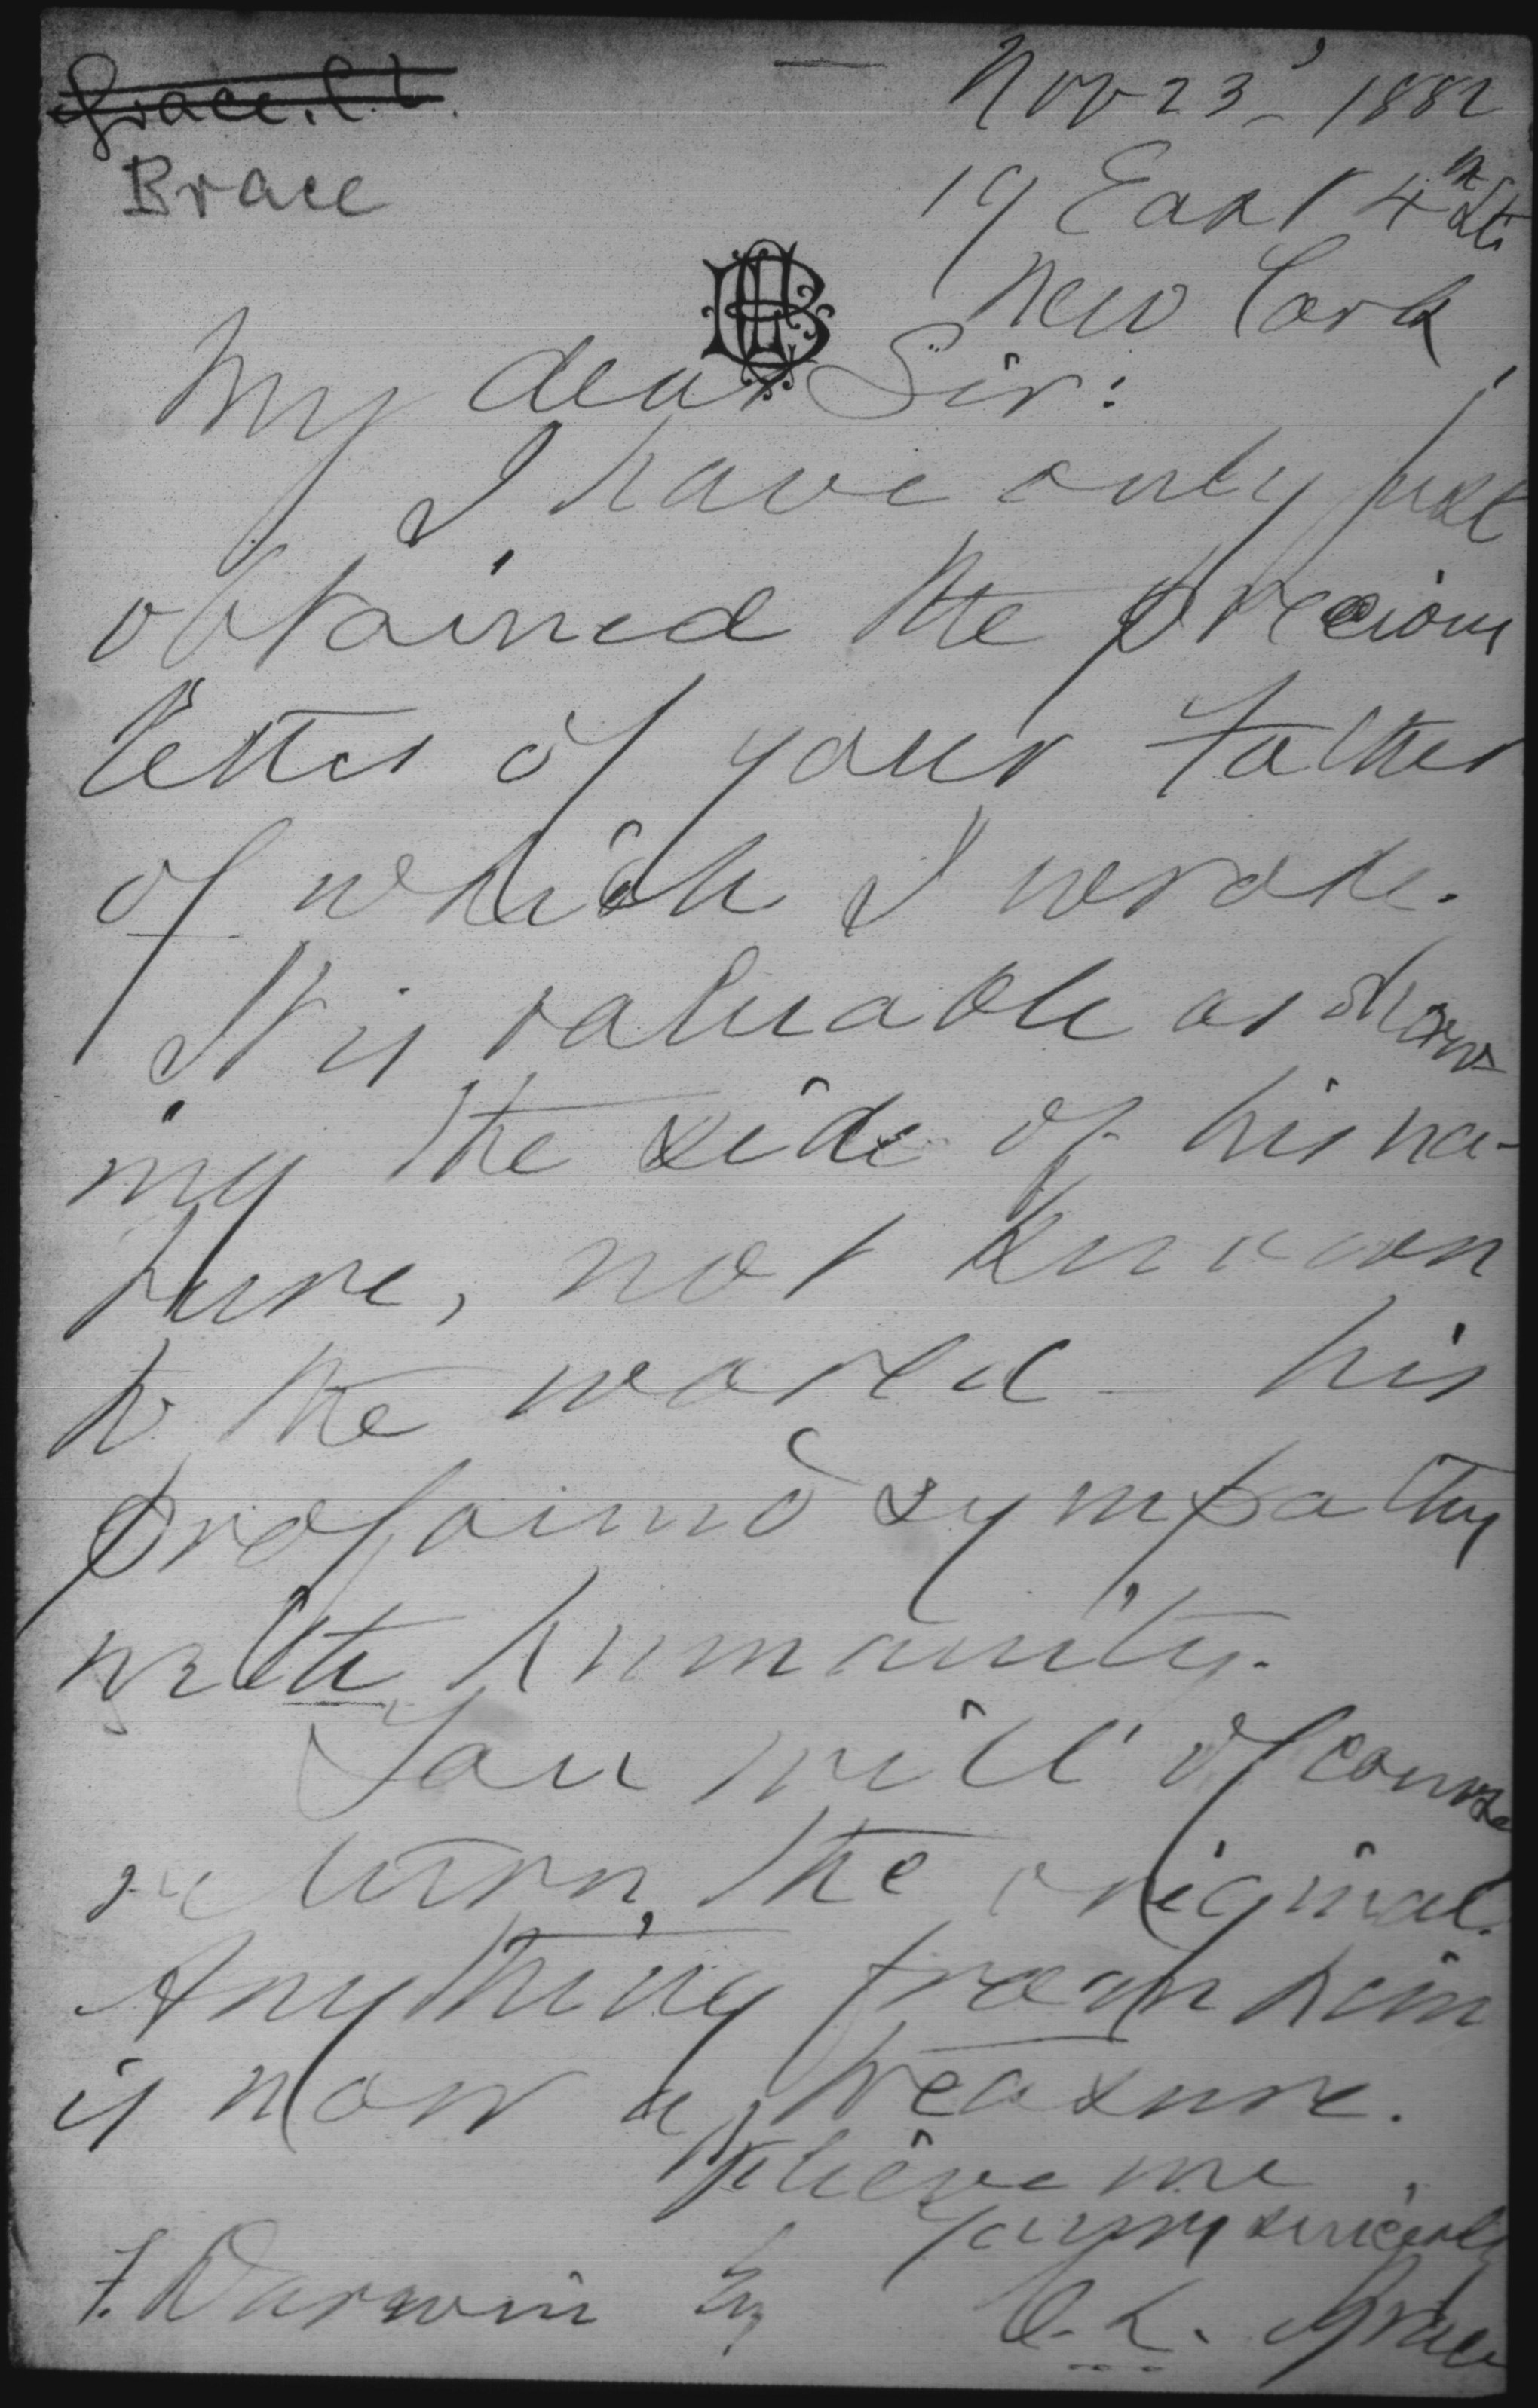 Grace. C. L.
Brace
Nov 23, 1882
19 East 4th St.
New York
My dear Sir:
I have only just
obtained the precious
letter of your father
of which I wrote.
It is valuable as show-
ing the side of his na-
ture, not known
to the world - his
profound sympathy
with humanity.
You will of course
return the original.
Anything from him
is now a treasure.
Believe me
Yours very sincerely
F. Darwin Esq
C. L. Brace